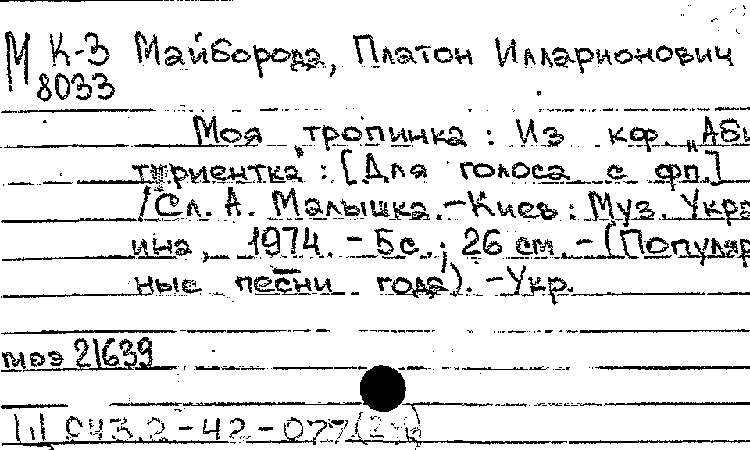 М К-3 Майборода, Платон Илларионович
8033
Моя тропинка : Из кф. „Аби
туриентка" : [Для голоса с фп.]
/Сл. А. Малышка. - Киев : Муз. Укра
ина, 1974. - 5 с. ; 26 см. - (Популяр
ные песни года). - Укр.
моэ 21639
Ш 943.2-42-077